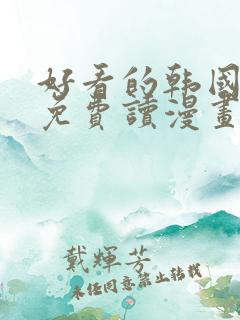 好看的韩国
免費讀漫畫
戴輝芳
未经同意禁止转载